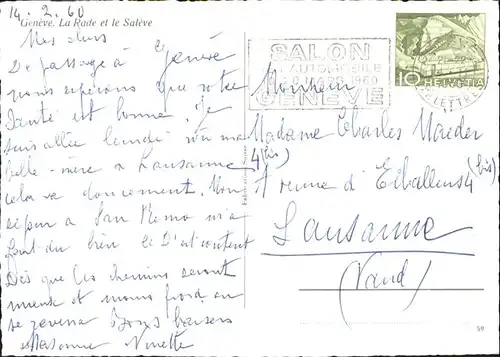 14.2.60
Genève. La Rade et le Salève
Mes chers
De passage à Genève
nous espérons que votre
santé est bonne. Je
suis allée lundi voir ma
belle-mère à Lausanne
cela va doucement. Mon
séjour à San Remo m'a
fait du bien
Dès que les chemins seront
mieux et moins froid on
se reverra Bons baisers
Ninette
SALON
AUTOMOBILE
1960
GENÈVE
10
HELVETIA
Monsieur
Madame Charles Maeder
4 (bis)
Avenue d'Echallens 4 (bis)
Lausanne
(Vaud)
59